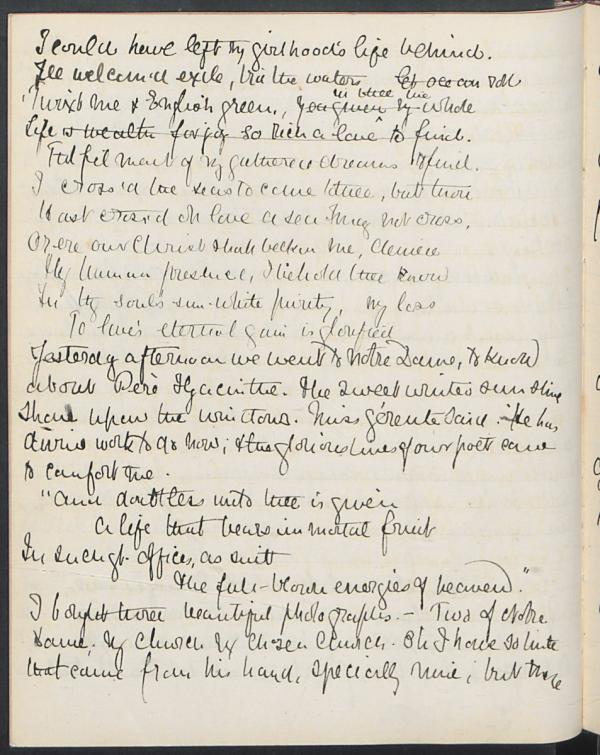 I could have left my girlhood's life behind.
I'ld welcomed exile, bid the waters let ocean roll
'Twixt me & English green, you given my in thee the whole
Life is wealth for joy so rich a love to find.
Fulfilment of my gathered dreams to find.
I cross'd the seas to come to thee, but thou
Hast crossed oh love a sea I may not cross,
Or ere our Christ shall beckon me, denied
Thy human presence, I behold thee know
In thy soul's sun-white purity, my loss
To love's eternal gain is glorified
Yesterday afternoon we went to Notre Dame, to know
about Père Hyacinthe. The sweet winter sunshine
shone upon the windows. Miss Gérente said. He has
divine work to do now; & the glorious lines of our poet came
to comfort me.
"And doubtless unto thee is given
A life that bears immortal fruit
In such gt. offices, as suit
The full-blown energies of heaven."
I bought three beautiful photographs. - Two of Notre
Dame. My Church my chosen Church. Oh I have so little
that came from his hand, specially mine; but these